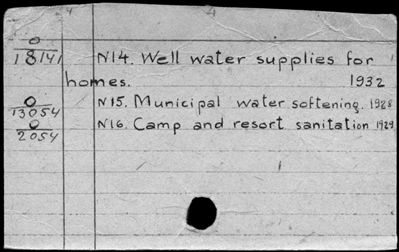 0
18141 N14. Well water supplies for
homes. 1932
0
13054 N15. Municipal water softening. 1928
0
2054 N16. Camp and resort sanitation 1929